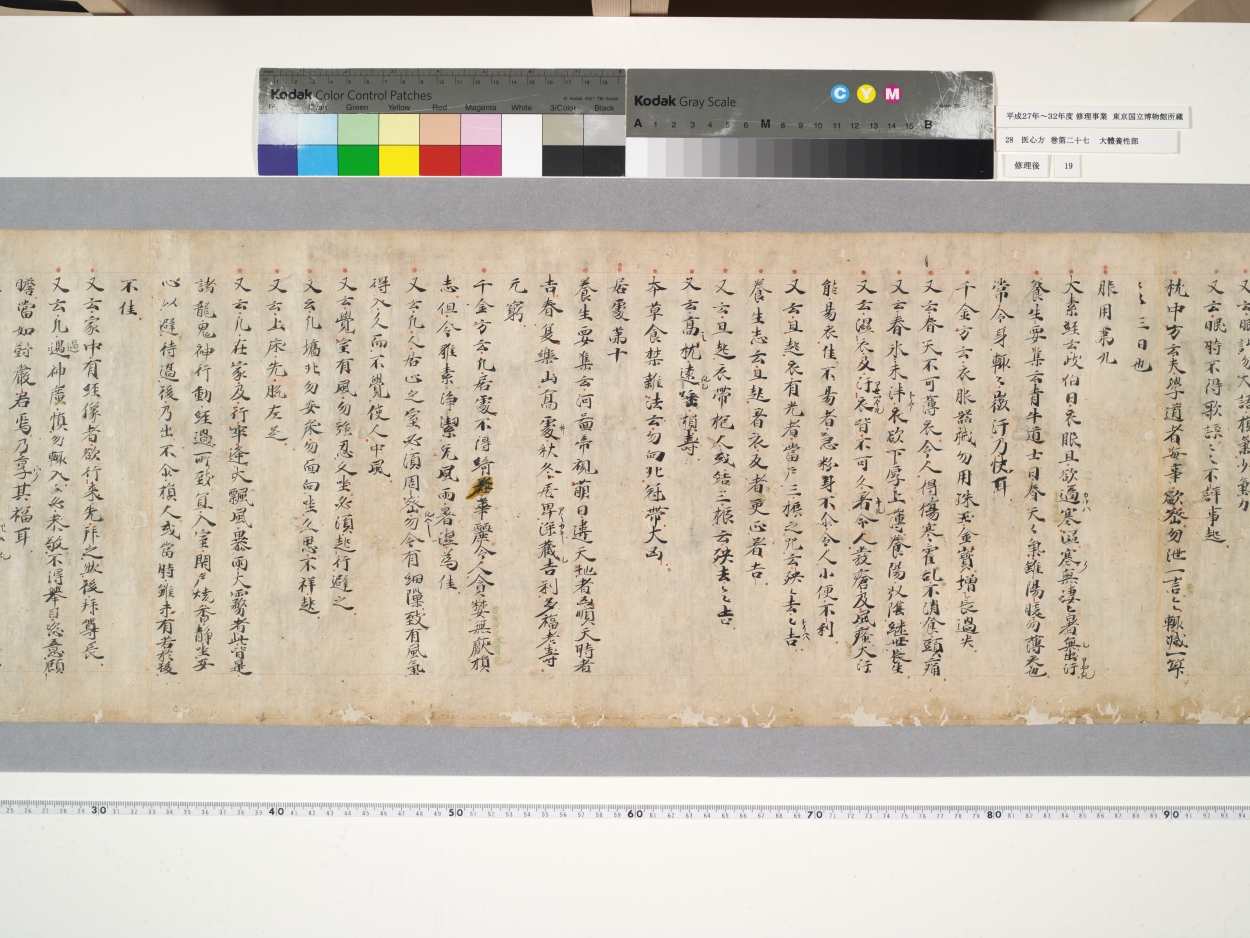 Kodak Color Control Patches
Cyan Green Yellow Red Magenta White 3/Color Black
Kodak Gray Scale
C Y M
A 1 2 3 4 5 6 M 8 9 10 11 12 13 14 15 B
平成27年～32年度 修理事業 東京国立博物館所蔵
28 医心方 巻第二十七 大體養性部
修理後 19
又云眠時不得歌詠々々不祥事起
枕中方云夫學道者每事欲密勿泄一言々輙減一筭
々々三日也
服用第九
大素經云岐伯曰衣服且欲適寒温寒無淒々暑無出汗
養生要集云青牛道士曰春天々氣雖陽暖勿薄衣也
常令身輙々微汗乃快耳
千金方云衣服器械勿用珠玉金寶増長過失
又云春天不可薄衣令人得傷寒霍乱不消食頭痛
又云春氷未泮衣欲下厚上薄養陽収陰継世長生
又云濕衣及汗衣皆不可久着令人發瘡及風瘙大汗
能易衣佳不易者急粉身不尒令人小便不利
又云旦起衣有光者當戶三振之咒云殃去々々吉
養生志云旦起着衣反者更正着吉
又云旦起衣帶抱人或結三振云殃去々々吉
又云高枕遠唾損壽
本草食禁雜法云勿向北冠帶大凶
居處第十
養生要集云河圖帝視萌曰違天地者凶順天時者
吉春夏樂山高處秋冬居卑深藏吉利多福老壽
无窮
千金方云凡居處不得綺華麗令人貪婪無厭損
志但令雅素浄潔免風雨暑濕為佳
又云凡人居止之室必須周密勿令有細隙致有風氣
得入久而不覺使人中風
又云覺室有風勿強忍久坐必須起行避之
又云凡墻北勿安床勿面向坐久思不祥起
又云上床先脱左足
又云凡在家及行卒逢大飄風暴雨大霧者此皆是
諸龍鬼神行動經過所致宜入室閇戶燒香静坐安
心以避待過後乃出不尒損人或當時雖未有若於後
不佳
又云家中有經像者欲行来先拜之然後拜尊長
又云凡遇神廟慎勿輙入々必恭敬不得舉目恣意顧
瞻當如對嚴君焉乃享其福耳
30 40 50 60 70 80 90